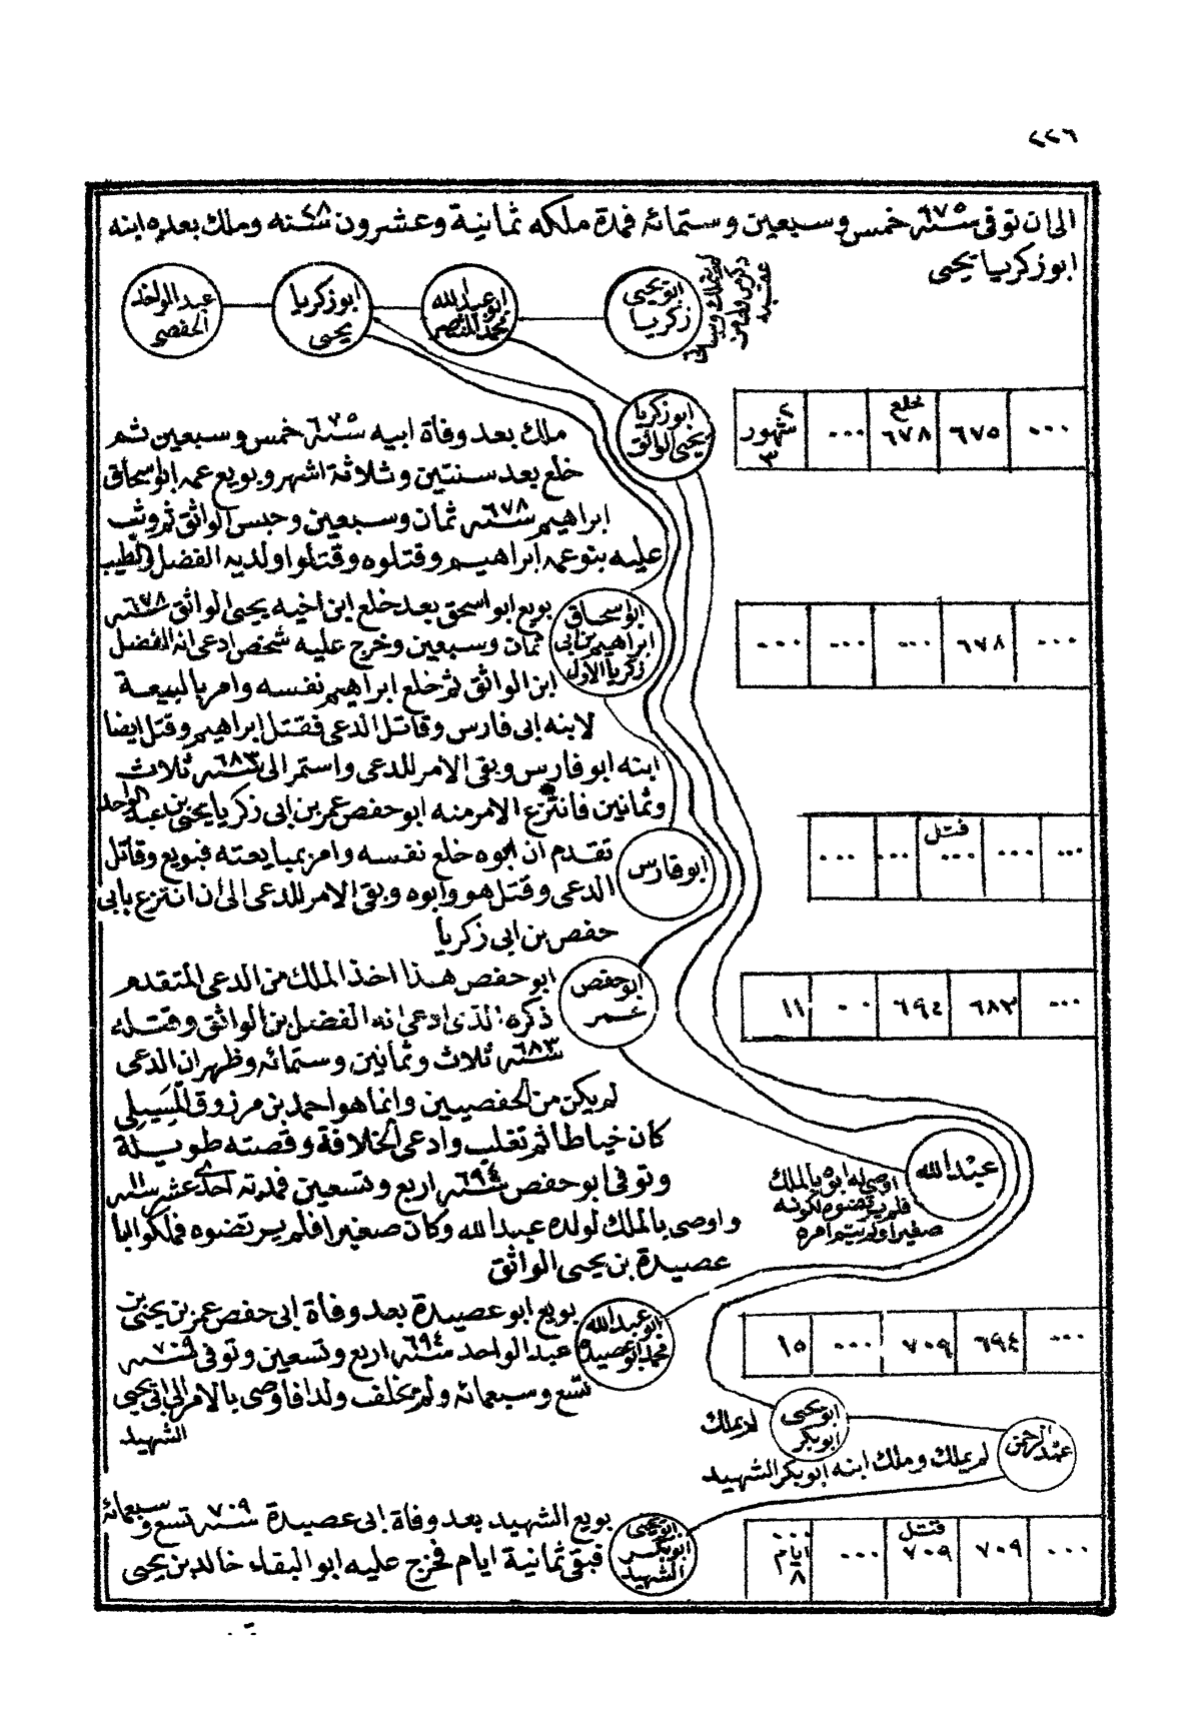 ٢٢٦
الى ان توفى سنة ٦٧٥ خمس وسبعين وستمائه فمدة ملكه ثمانية وعشرون سنه ٢٨ وملك بعده ابنه
ابوزكريا يحيى
ابو يحيى
زكريا
ابو عبدالله
محمد المنتصر
ابوزكريا
يحيى
عبدالواحد
الحفصى
ابوزكريا
يحيى الواثق
...
٦٧٥
خلع
٦٧٨
...
٢
شهور
٣
ملك بعد وفاة ابيه سنة ٦٧٥ خمس وسبعين ثم
خلع بعد سنتين وثلاثة اشهر وبويع عمه ابواسحاق
ابراهيم سنة ٦٧٨ ثمان وسبعين وحبس الواثق ثم وثب
عليه بنو عمه ابراهيم وقتلوه وقتلوا ولديه الفضل والطيب
ابواسحاق
ابراهيم بن ابى
زكريا الاول
...
٦٧٨
...
...
...
بويع ابو اسحق بعد خلع ابن اخيه يحيى الواثق سنه ٦٧٨
ثمان وسبعين وخرج عليه شخص ادعى انه الفضل
ابن الواثق ثم خلع ابراهيم نفسه وامر بالبيعة
لابنه ابى فارس وقاتل الدعى فقتل ابراهيم وقتل ايضا
ابنه ابو فارس وبقى الامر للدعى واستمر الى سنه ٦٨٣ ثلاث
وثمانين فانتزع الامر منه ابو حفص عمر بن ابى زكريا يحيى بن عبد الواحد
ابو فارس
...
...
قتل
...
...
...
تقدم ان ابوه خلع نفسه وامر بمبايعته فبويع وقاتل
الدعى وقتل هو وابوه وبقى الامر للدعى الى ان انتزع بابى
حفص بن ابى زكريا
ابو حفص
عمر
...
٦٨٣
٦٩٤
..
١١
ابو حفص هذا اخذ الملك من الدعى المتقدم
ذكره الذى ادعى انه الفضل بن الواثق وقتله
سنه ٦٨٣ ثلاث وثمانين وستمائه وظهر ان الدعى
لم يكن من الحفصيين وانما هو احمد بن مرزوق المسيلى
كان خياطا ثم تغلب وادعى الخلافة وقصته طويلة
وتوفى ابو حفص سنه ٦٩٤ اربع وتسعين فمدته احدى عشر سنه ١١
واوصى بالملك لولده عبدالله وكان صغيرا فلم يرتضوه فملكوا ابا
عصيدة بن يحيى الواثق
عبدالله
اوصى له ابوه بالملك
فلم يرتضوه لكونه
صغيرا ولم يتم امره
ابو عبدالله
محمد ابو عصيده
...
٦٩٤
٧٠٩
...
١٥
بويع ابو عصيدة بعد وفاة ابى حفص عمر بن يحيى بن
عبد الواحد سنه ٦٩٤ اربع وتسعين وتوفى سنه ٧٠٩
تسع وسبعمائة ولم يخلف ولدا فاوصى بالامر الى ابى يحيى
الشهيد
ابو يحيى
ابو بكر
لم يملك
عبد الرحمن
لم يملك وملك ابنه ابو بكر الشهيد
ابو يحيى
ابو بكر
الشهيد
...
٧٠٩
قتل
٧٠٩
...
...
ايام
٨
بويع الشهيد بعد وفاة ابى عصيدة سنه ٧٠٩ تسع وسبعمائة
فبقى ثمانية ايام فخرج عليه ابو البقاء خالد بن يحيى